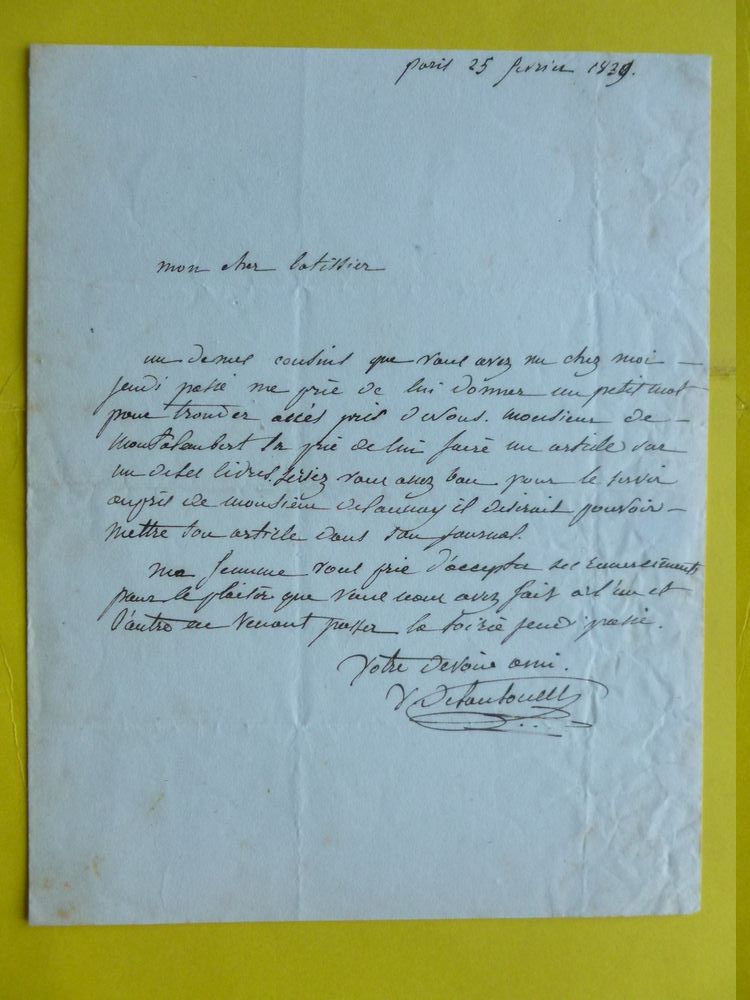 paris 25 fevrier 1839.
mon cher batissier
un de mes cousins que vous avez vu chez moi –
jeudi passé me prie de lui donner un petit mot
pour trouver accés prés de vous. monsieur de –
montalembert l'a prié de lui faire un article sur
un de ses livres. seriez vous assez bon pour le servir
auprés de monsieur delaunay il desirait pouvoir –
mettre son article dans son journal.
ma femme vous prie d'accepter ses remerciments
pour le plaisir que vous nous avez fait a l'un et
l'autre en venant passer la soirée jeudi passé.
Votre devoué ami.